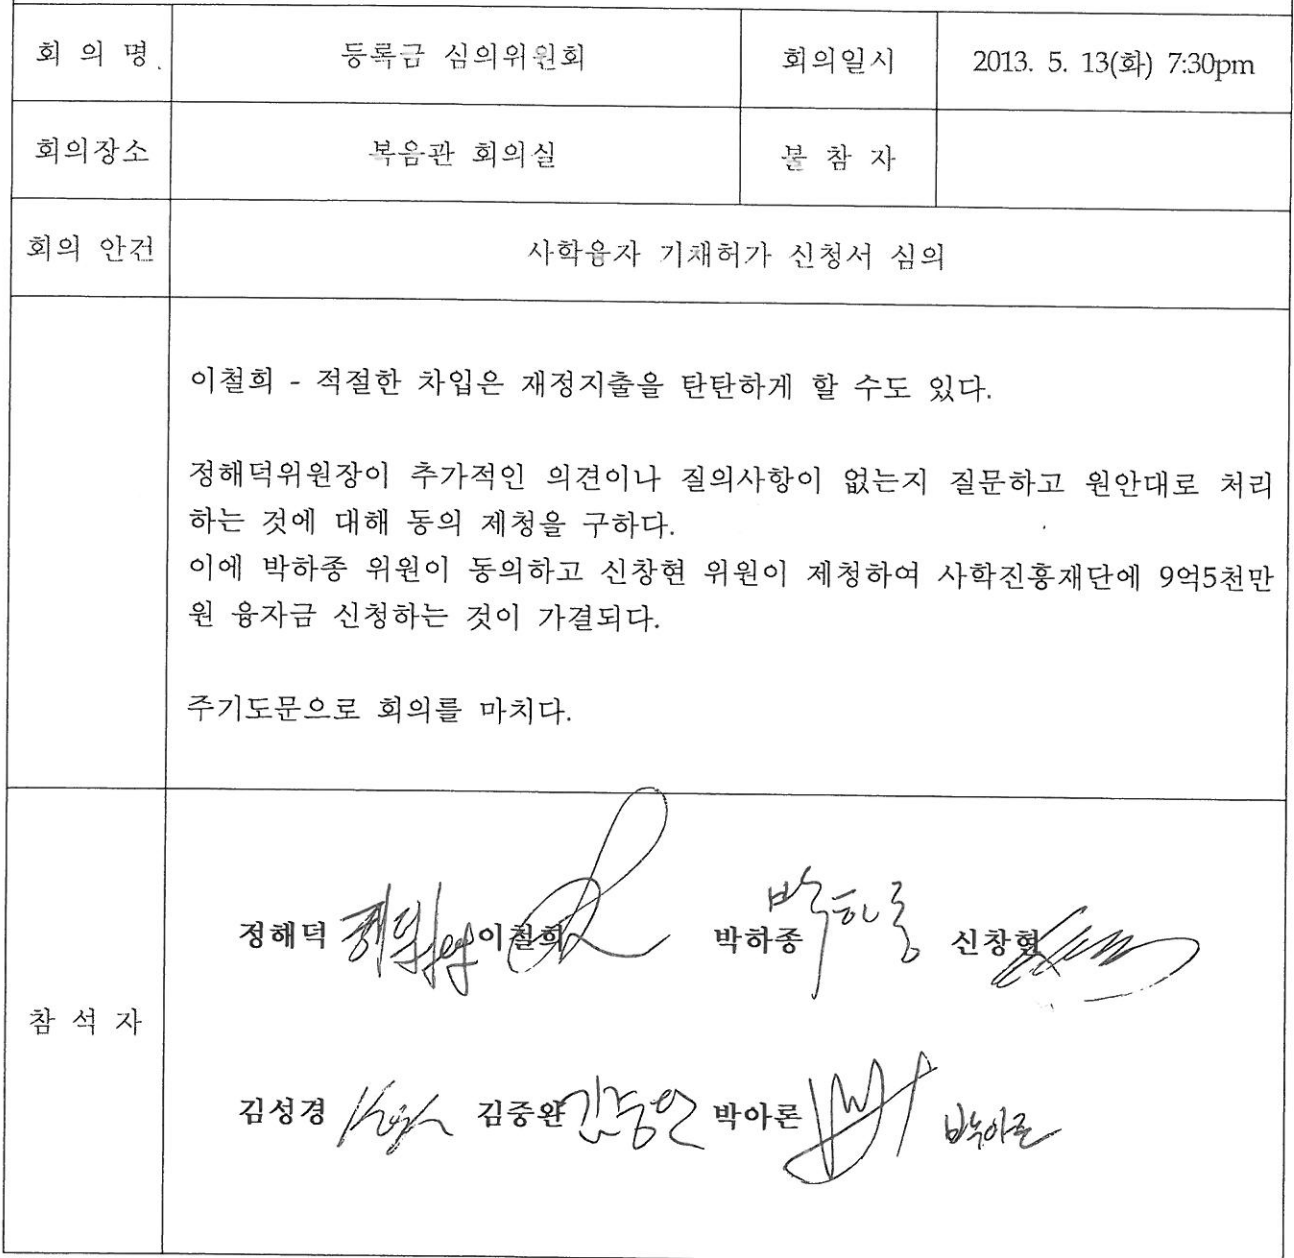 회 의 명
등록금 심의위원회
회의일시
2013. 5. 13(화) 7:30pm
회의장소
복음관 회의실
불 참 자
회의 안건
사학융자 기채허가 신청서 심의
이철희 - 적절한 차입은 재정지출을 탄탄하게 할 수도 있다.
정해덕위원장이 추가적인 의견이나 질의사항이 없는지 질문하고 원안대로 처리
하는 것에 대해 동의 제청을 구하다.
이에 박하종 위원이 동의하고 신창현 위원이 제청하여 사학진흥재단에 9억5천만
원 융자금 신청하는 것이 가결되다.
주기도문으로 회의를 마치다.
참 석 자
정해덕 이철희 박하종 박하종 신창현
김성경 김중완 김중완 박아론 박아론